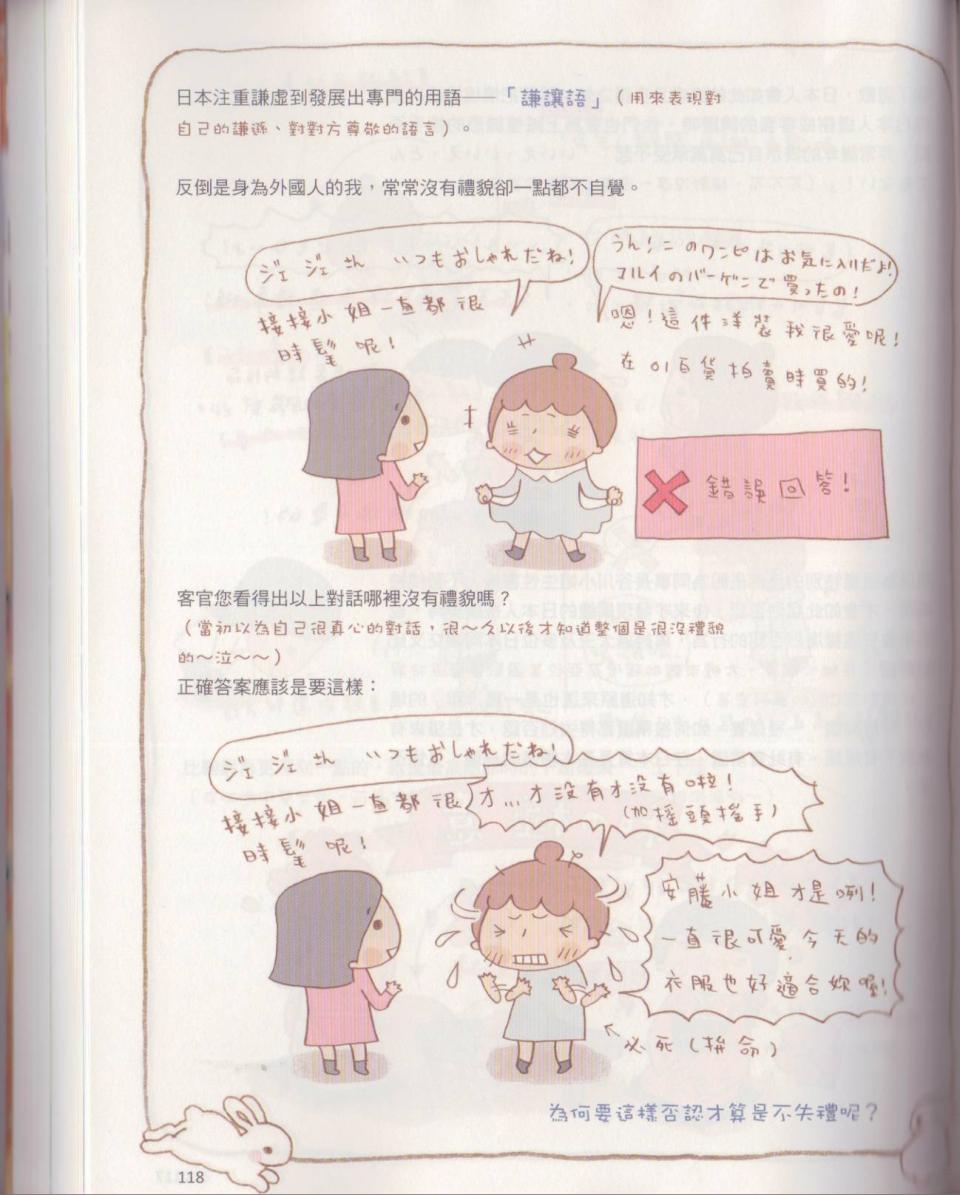 日本注重謙虛到發展出專門的用語——「謙讓語」(用來表現對
自己的謙遜、對對方尊敬的語言)。
反倒是身為外國人的我，常常沒有禮貌卻一點都不自覺。
ジェ ジェ さん いつもおしゃれだね!
接接小姐一直都很
時髦呢!
うん!このワンピはお気に入りだよ!
マルイのバーゲンで買ったの!
嗯!這件洋裝我很愛呢!
在01百貨拍賣時買的!
錯誤回答!
客官您看得出以上對話哪裡沒有禮貌嗎？
(當初以為自己很真心的對話，很～久以後才知道整個是很沒禮貌
的～泣～～)
正確答案應該是要這樣：
ジェ ジェ さん いつもおしゃれだね!
接接小姐一直都很
時髦呢!
才...才沒有才沒有啦!
(加搖頭搖手)
安藤小姐才是咧!
一直很可愛今天的
衣服也好適合妳喔!
必死(拚命)
為何要這樣否認才算是不失禮呢？
118